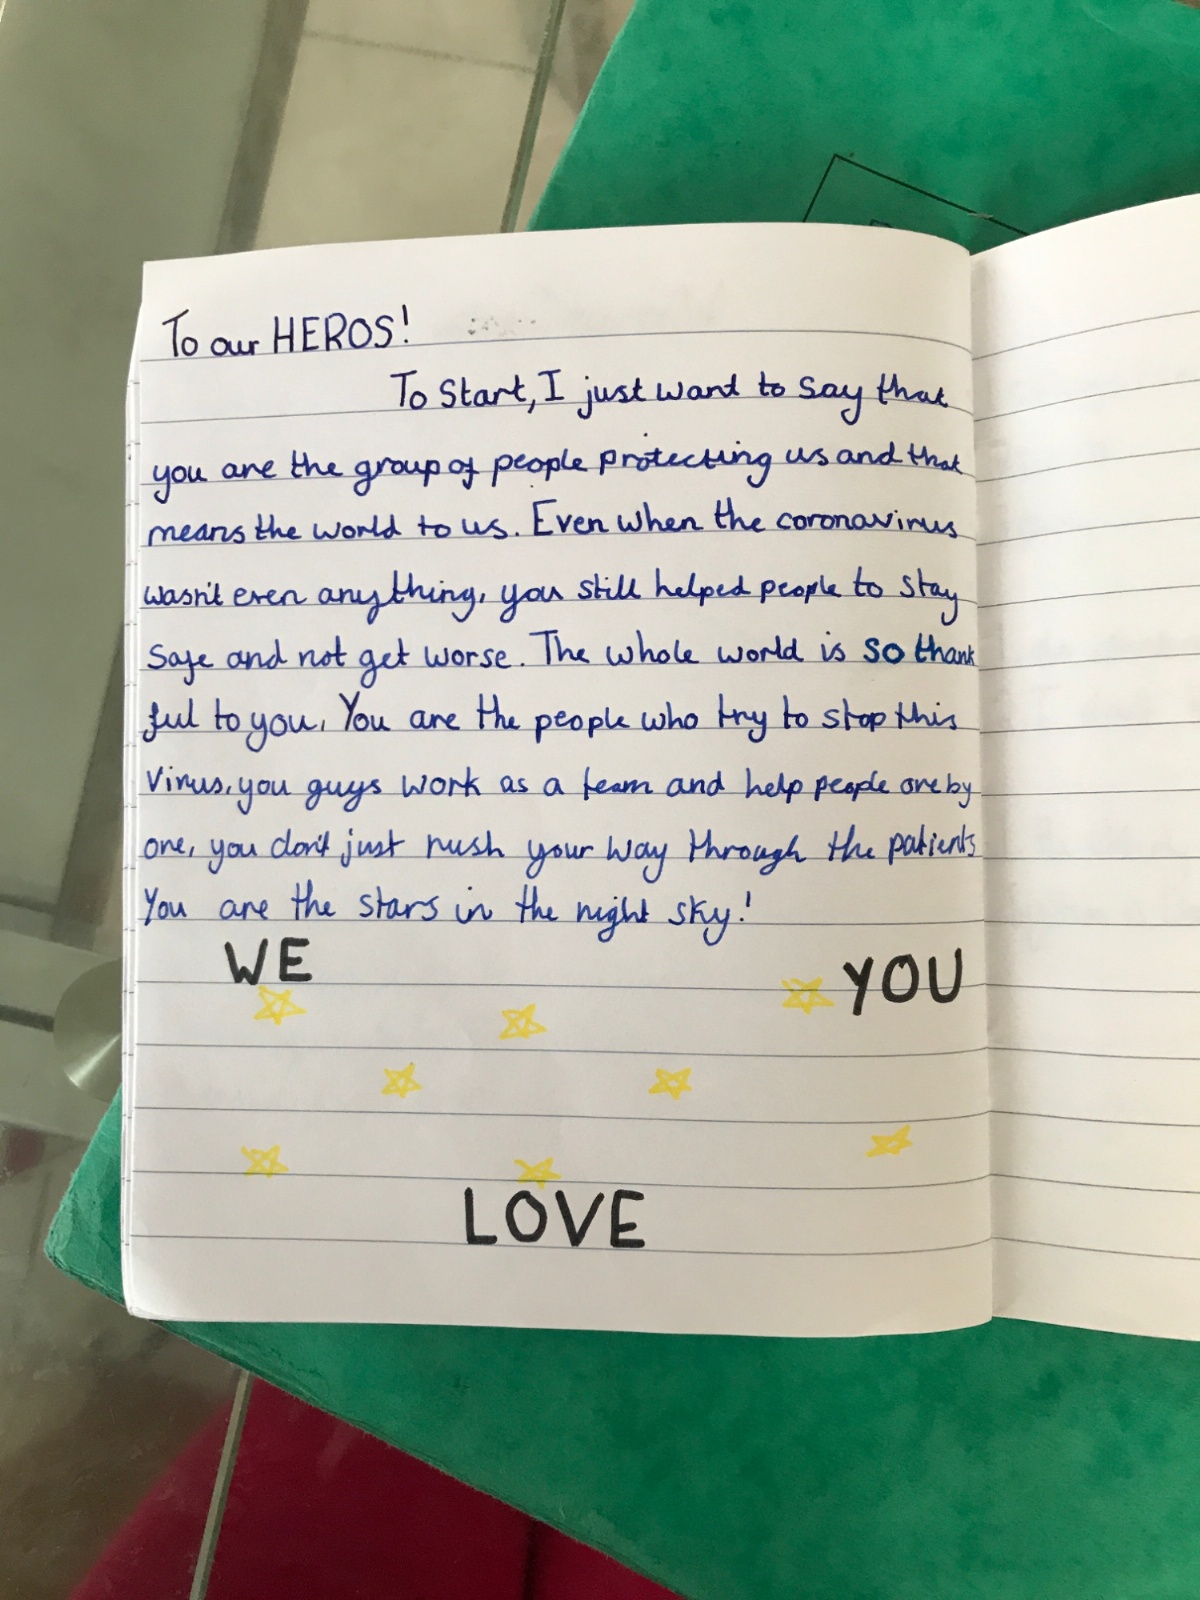 To our HEROS!
To Start, I just want to say that
you are the group of people protecting us and that
means the world to us. Even when the coronavirus
wasn't even anything, you still helped people to stay
safe and not get worse. The whole world is so thank
ful to you. You are the people who try to stop this
virus, you guys work as a team and help people one by
one, you don't just rush your way through the patients
You are the stars in the night sky!
WE
YOU
LOVE